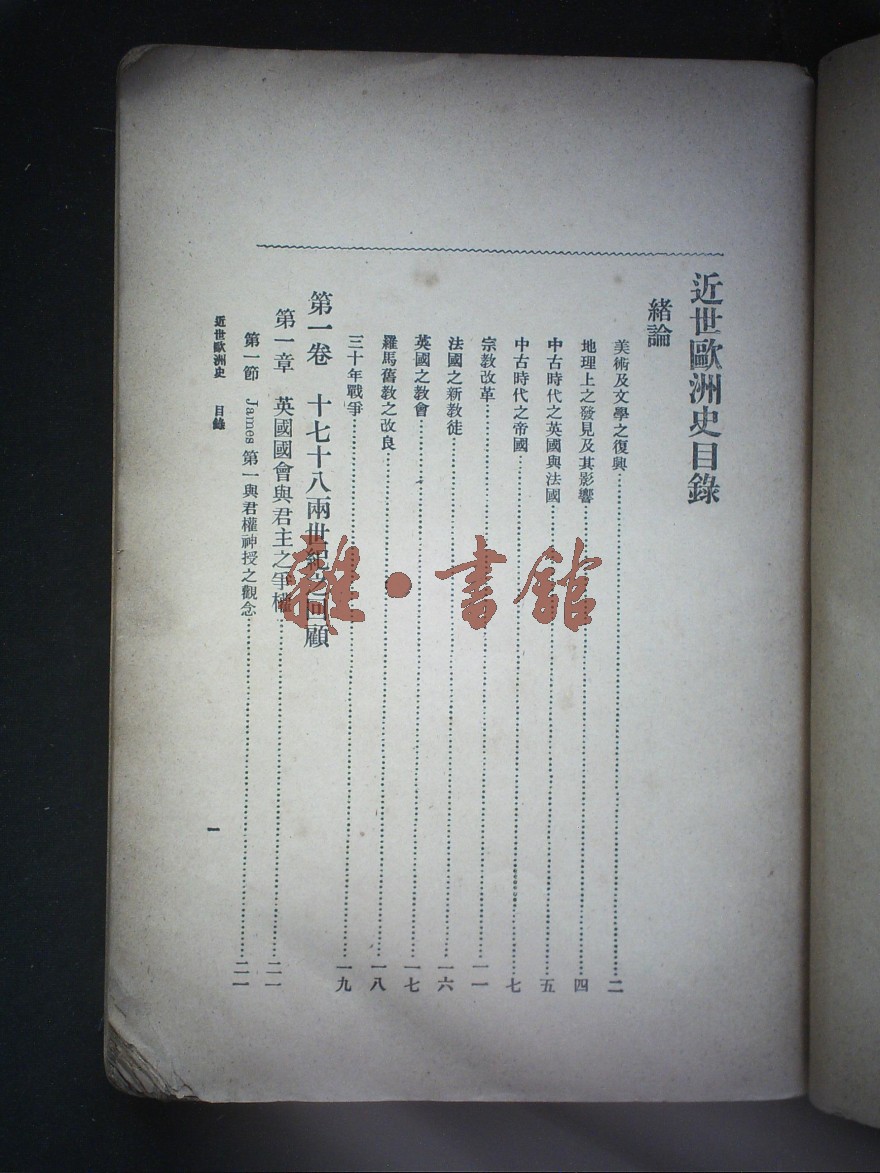 近世歐洲史目錄
緒論
美術及文學之復興……二
地理上之發見及其影響……四
中古時代之英國與法國……五
中古時代之帝國……七
宗教改革……一一
法國之新教徒……一六
英國之教會……一七
羅馬舊教之改良……一八
三十年戰爭……一九
第一卷 十七十八兩世紀之回顧
第一章 英國國會與君主之爭權……二一
第一節 James 第一與君權神授之觀念……二一
近世歐洲史 目錄
一
雜·書館